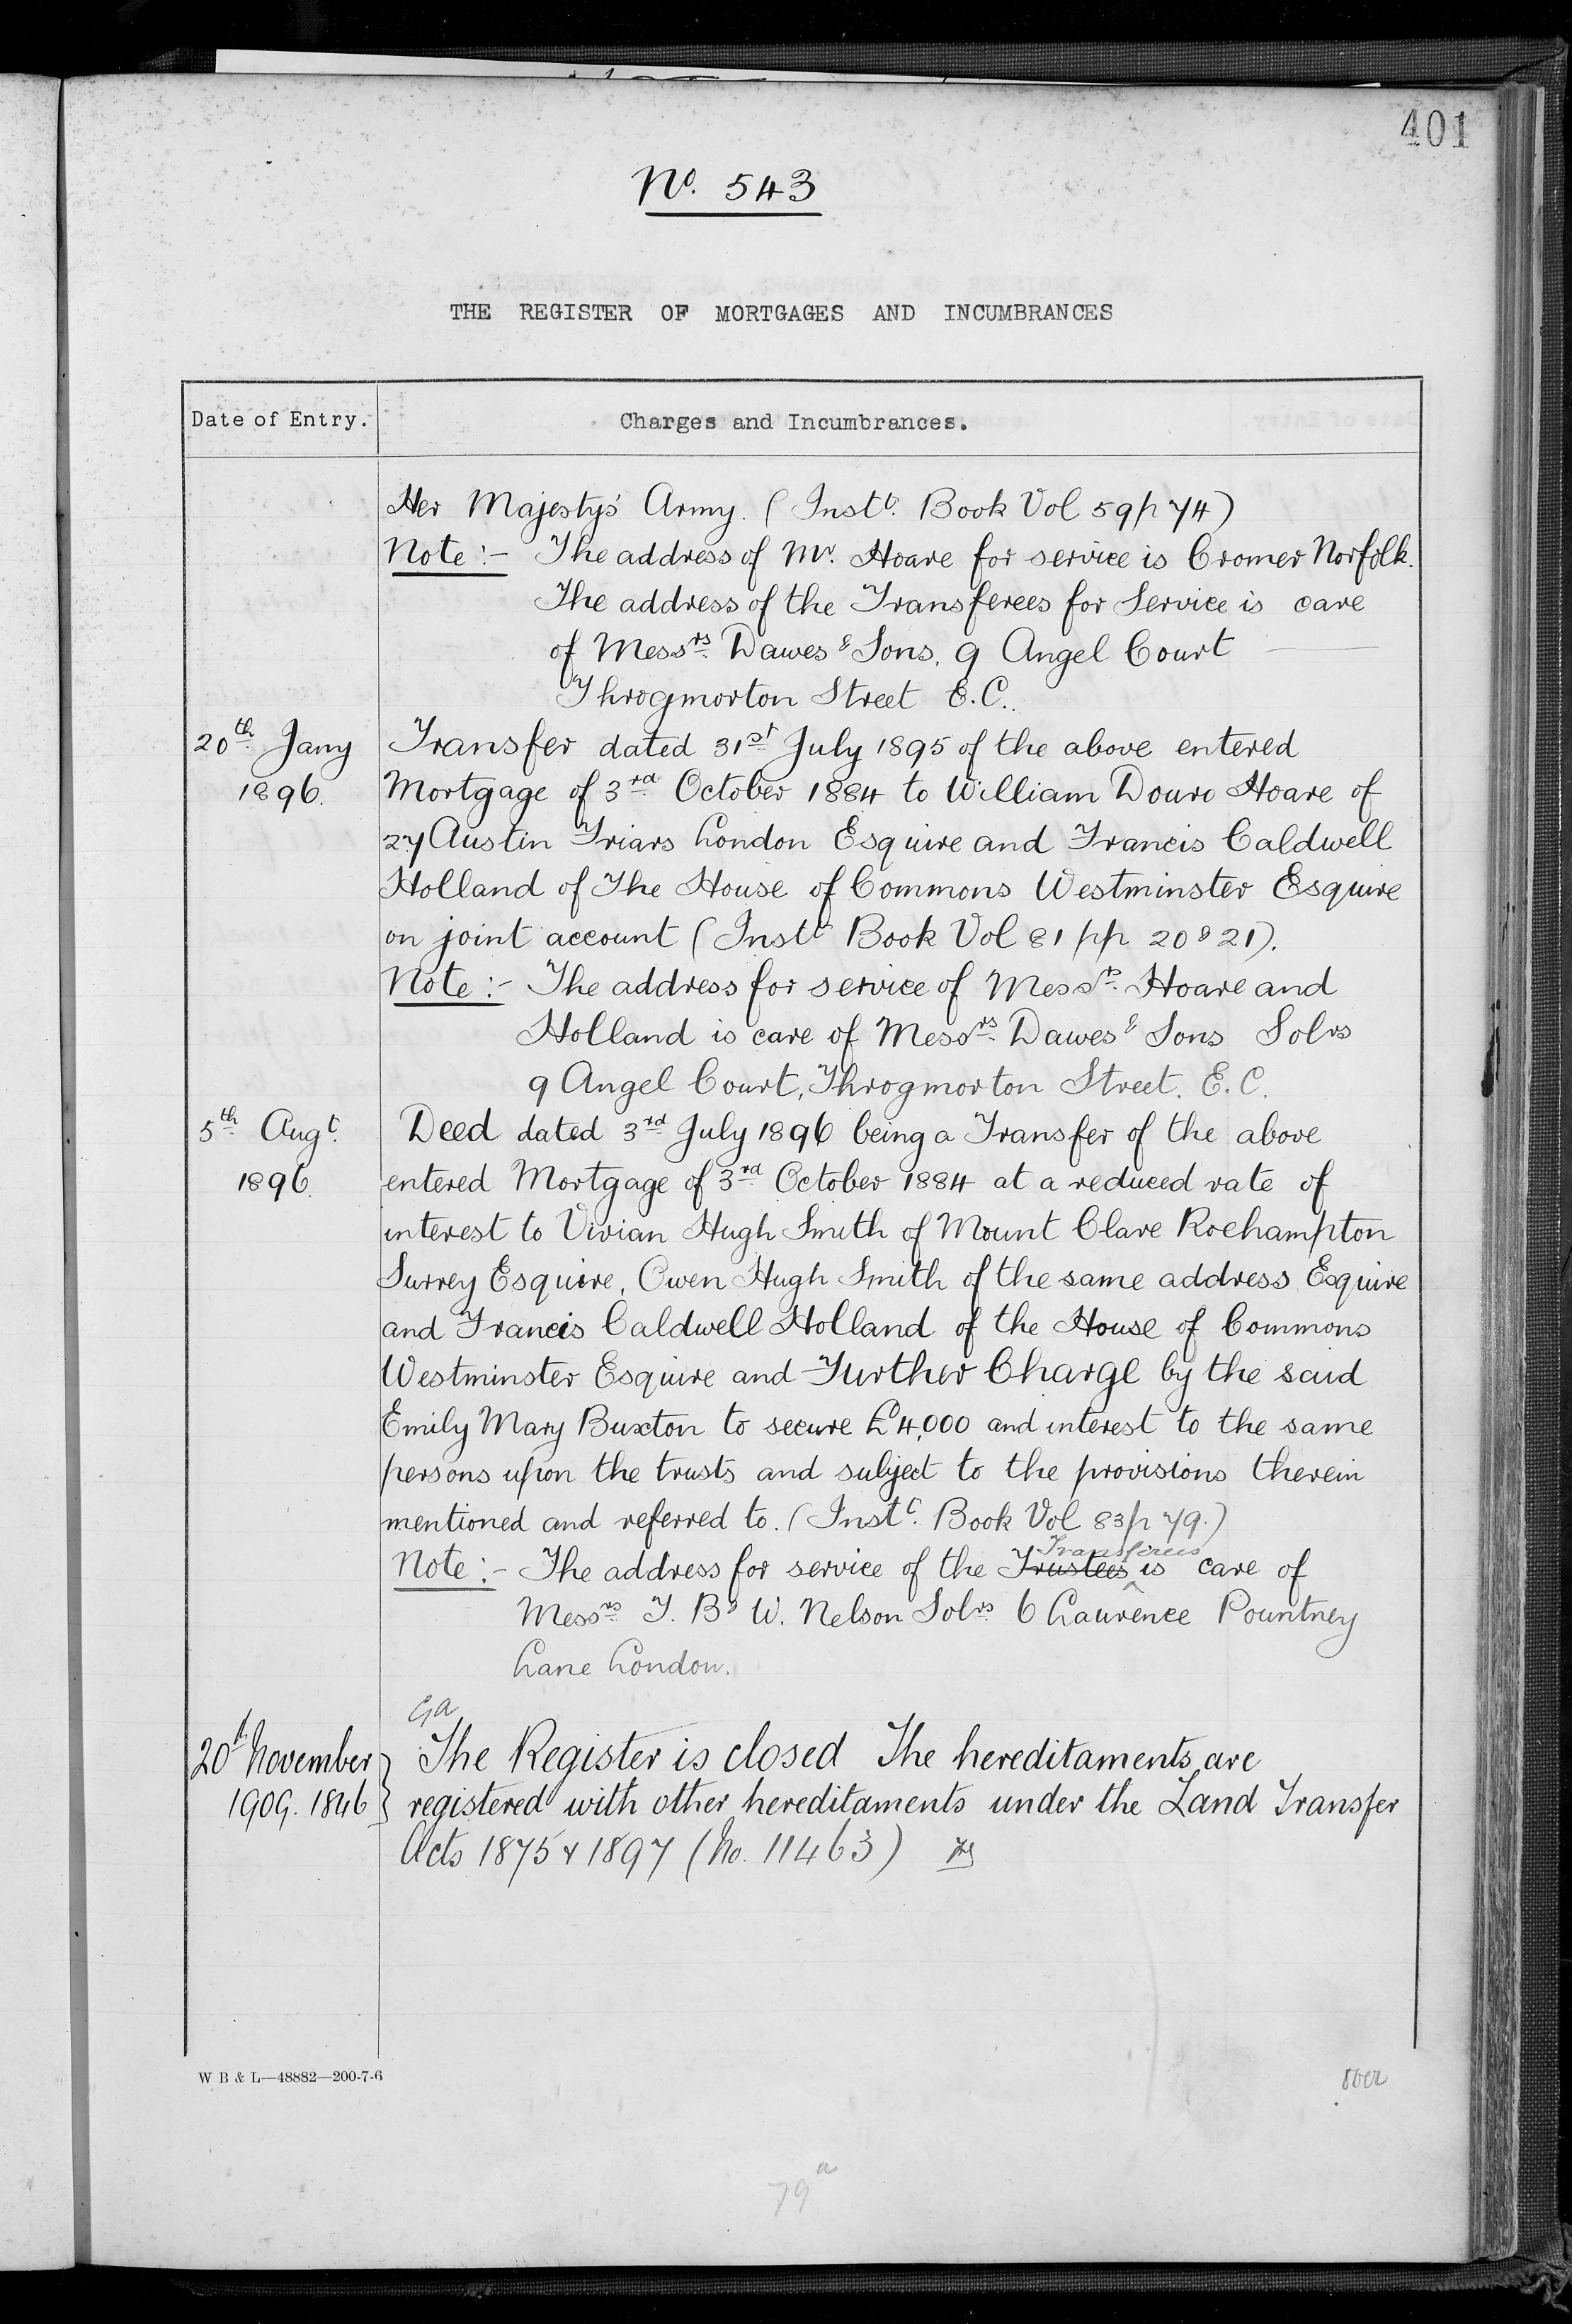 401
No. 543
THE REGISTER OF MORTGAGES AND INCUMBRANCES
Date of Entry. Charges and Incumbrances.
Her Majesty's Army. (Instt. Book Vol 59 p 74)
Note:- The address of Mr. Hoare for service is Cromer Norfolk.
The address of the Transferees for Service is care
of Messrs. Dawes & Sons, 9 Angel Court
Throgmorton Street E.C.
20th Jany Transfer dated 31st July 1895 of the above entered
1896. Mortgage of 3rd October 1884 to William Douro Hoare of
27 Austin Friars London Esquire and Francis Caldwell
Holland of The House of Commons Westminster Esquire
on joint account (Instt Book Vol 81 pp 20 & 21).
Note:- The address for service of Messrs. Hoare and
Holland is care of Messrs. Dawes & Sons Solrs
9 Angel Court, Throgmorton Street. E.C.
5th Augt. Deed dated 3rd July 1896 being a Transfer of the above
1896. entered Mortgage of 3rd October 1884 at a reduced rate of
interest to Vivian Hugh Smith of Mount Clare Roehampton
Surrey Esquire, Owen Hugh Smith of the same address Esquire
and Francis Caldwell Holland of the House of Commons
Westminster Esquire and Further Charge by the said
Emily Mary Buxton to secure £4,000 and interest to the same
persons upon the trusts and subject to the provisions therein
mentioned and referred to. (Instt. Book Vol 83 p 79.)
Transferees
Note:- The address for service of the Trustees is care of
Messrs T. B & W. Nelson Solrs 6 Laurence Pountney
Lane London.
20th November The Register is closed The hereditaments are
1909. 1846 registered with other hereditaments under the Land Transfer
Acts 1875 & 1897 (No. 11463)
W B & L—48882—200-7-6
79a